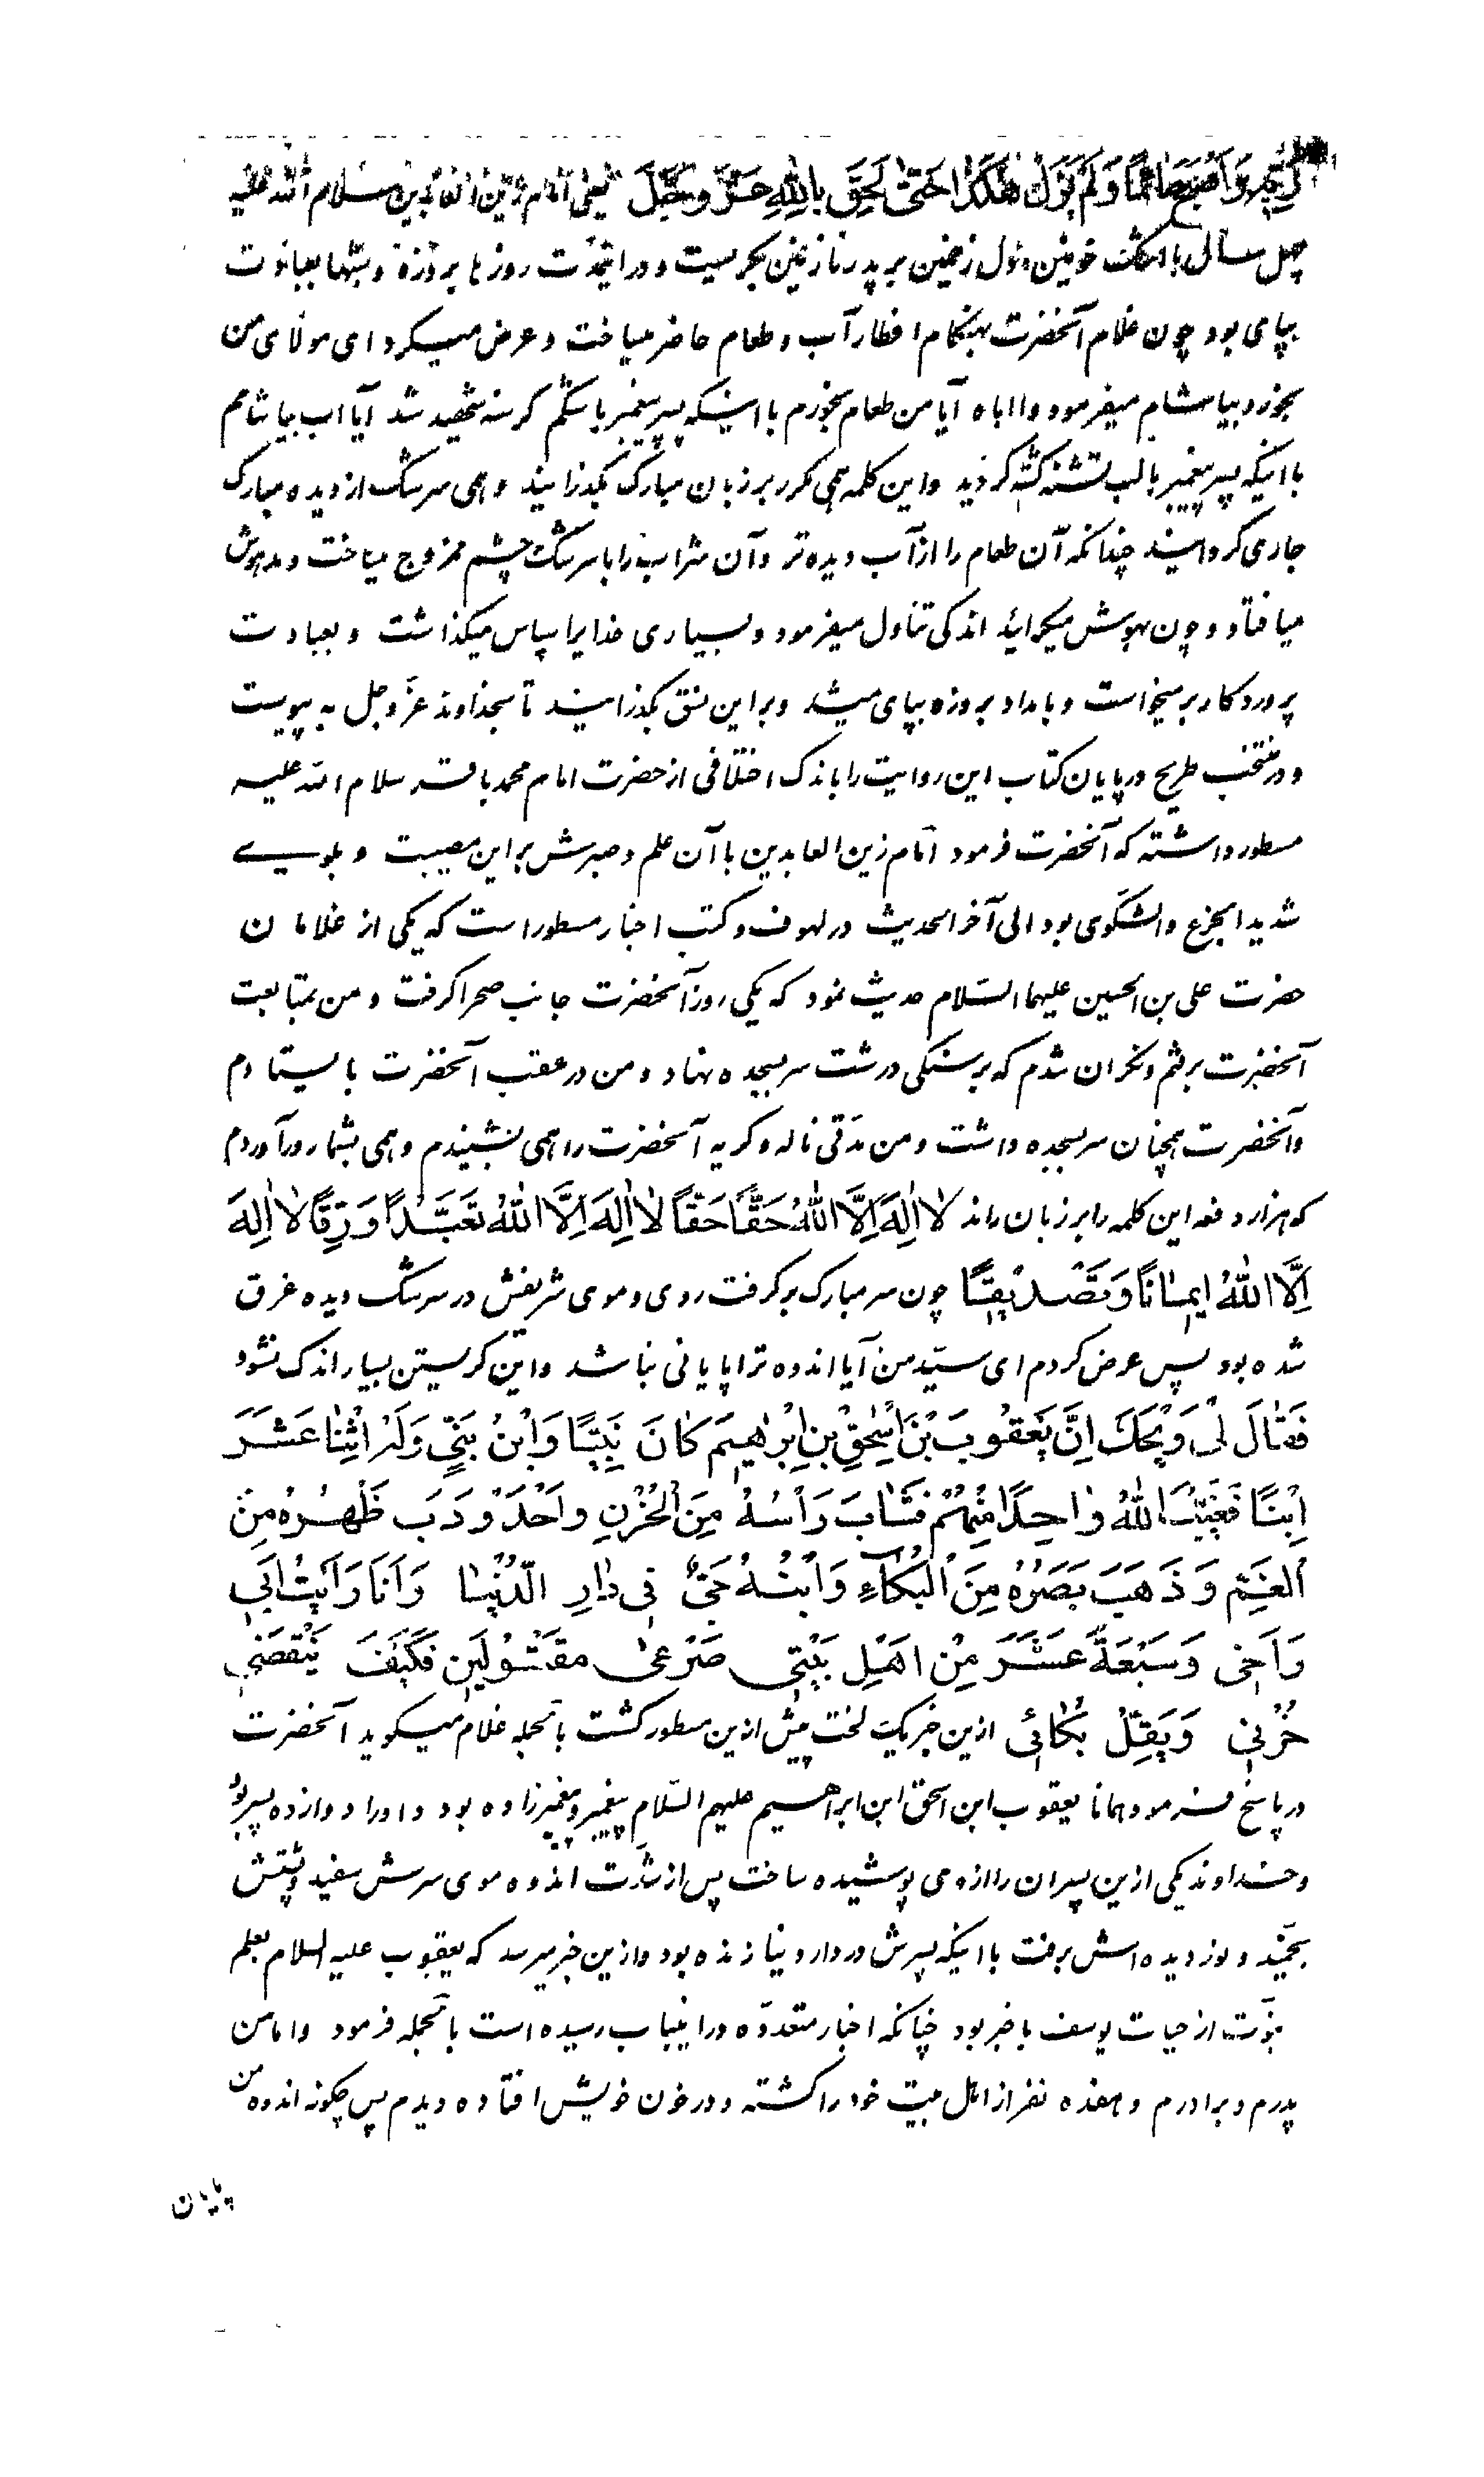 لِرَبِّهِ وَاَصْبَحَ صَائِمًا وَلَمْ يَزَلْ هٰكَذَا حَتّىٰ لَحِقَ بِاللّٰهِ عَزَّ وَجَلَّ یعنی امام زین العابدین سلام الله علیه
چهل سال با اشک خونین و دل زخمین بر پدر نازنین بگریست و در اینمدّت روزها بروزه و شبها بعبادت
بپای بود چون غلام آنحضرت بهنگام افطار آب و طعام حاضر میساخت و عرض میکرد ای مولای من
بخور و بیاشام میفرمود وا اباه آیا من طعام بخورم با اینکه پسر پیغمبر با شکم گرسنه شهید شد آیا آب بیاشامم
با اینکه پسر پیغمبر بالب تشنه کشته گردید و این کلمه همی مکرر بر زبان مبارک بگذرانید و همی سرشک از دیده مبارک
جاری گردانید چندانکه آن طعام را از آب دیده تر و آن شراب را با سرشک چشم ممزوج میساخت و مدهوش
میافتاد و چون بهوش میگرائید اندکی تناول میفرمود و بسیاری خدایرا سپاس میگذاشت و بعبادت
پروردگار برمیخواست و بامداد بروزه بپای میشد و بر این نسق بگذرانید تا بخداوند عزّ و جل به پیوست
و در منتخب طریح در پایان کتاب این روایت را باندک اختلافی از حضرت امام محمد باقر سلام الله علیه
مسطور داشته که آنحضرت فرمود امام زین العابدین با آن حلم و صبرش بر این مصیبت و بلوی
شدید الجزع و الشکوی بود الی آخر الحدیث در لهوف و کتب اخبار مسطور است که یکی از غلامان
حضرت علی بن الحسین علیهما السّلام حدیث نمود که یکی روز آنحضرت جانب صحرا گرفت و من بمتابعت
آنحضرت برفتم و نگران شدم که بر سنگی درشت سر بسجده نهاد و من در عقب آنحضرت بایستادم
و آنحضرت همچنان سر بسجده داشت و من مدّتی ناله و گریه آنحضرت را همی بشنیدم و همی بشمار درآوردم
که هزار دفعه این کلمه را بر زبان راند لاٰ اِلٰهَ اِلَّا اللّٰهُ حَقًّا حَقًّا لاٰ اِلٰهَ اِلَّا اللّٰهُ تَعَبُّدًا وَ رِقًّا لاٰ اِلٰهَ
اِلَّا اللّٰهُ اِیمٰانًا وَ تَصْدیٖقًا چون سر مبارک برگرفت روی و موی شریفش در سرشک دیده غرق
شده بود پس عرض کردم ای سیّد من آیا اندوه ترا پایانی نباشد و این گریستن بسیار اندک نشود
فَقٰالَ لیٖ وَیْحَكَ اِنَّ یَعْقُوبَ بْنَ اِسْحٰقَ بْنِ اِبْرٰهیمَ کٰانَ نَبِیًّا وَ ابْنُ نَبِیٍّ وَ لَهُ اثْنٰا عَشَرَ
اِبْنًا فَغَیَّبَ اللّٰهُ وٰاحِدًا مِنْهُمْ فَشٰابَ رَاْسُهُ مِنَ الْحُزْنِ وَ احْدَوْدَبَ ظَهْرُهُ مِنَ
الْغَمِّ وَ ذَهَبَ بَصَرُهُ مِنَ الْبُکٰاءِ وَ ابْنُهُ حَیٌّ فِی دٰارِ الدُّنْیٰا وَ اَنَا رَاَیْتُ اَبِی
وَ اَخِی وَ سَبْعَةَ عَشَرَ مِنْ اَهْلِ بَیْتِی صَرْعیٰ مَقْتُولِینَ فَکَیْفَ یَنْقَضِی
حُزْنِی وَ یَقِلُّ بُکٰائِی ازین خبر یک لخت پیش ازین مسطور گشت بالجمله غلام میگوید آنحضرت
در پاسخ فرمود همانا یعقوب ابن اسحق ابن ابراهیم علیهم السّلام پیغمبر و پیغمبرزاده بود و او را دوازده پسر بود
و خداوند یکی ازین پسران را از وی پوشیده ساخت پس از شدّت اندوه موی سرش سفید و پشتش
بخمید و نور دیده‌اش برفت با اینکه پسرش در دار دنیا زنده بود و ازین خبر میرسد که یعقوب علیه السلام بعلم
نبوّت از حیات یوسف با خبر بود چنانکه اخبار متعدّده در اینباب رسیده است بالجمله فرمود و اما من
پدرم و برادرم و هفده نفر از اهل بیت خود را کشته و در خون خویش افتاده دیدم پس چگونه اندوه من
پایان